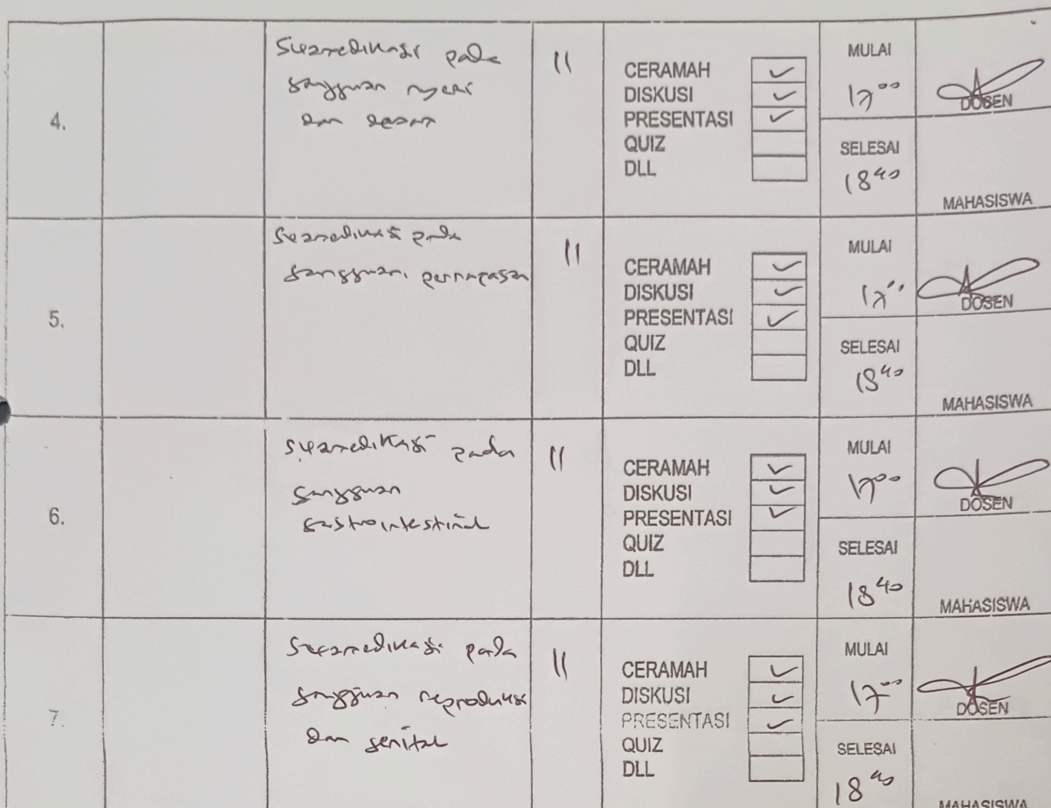 4.
Swamedikasi pada
gangguan nyeri
dan demam
11
CERAMAH ✓
DISKUSI ✓
PRESENTASI ✓
QUIZ
DLL
MULAI
17⁰⁰
SELESAI
18⁴⁰
DOSEN
MAHASISWA
5.
Swamedikasi pada
gangguan pernapasan
11
CERAMAH ✓
DISKUSI ✓
PRESENTASI ✓
QUIZ
DLL
MULAI
17⁰⁰
SELESAI
18⁴⁰
DOSEN
MAHASISWA
6.
Swamedikasi pada
gangguan
gastrointestinal
11
CERAMAH ✓
DISKUSI ✓
PRESENTASI ✓
QUIZ
DLL
MULAI
17⁰⁰
SELESAI
18⁴⁰
DOSEN
MAHASISWA
7.
Swamedikasi pada
gangguan reproduksi
dan genital
11
CERAMAH ✓
DISKUSI ✓
PRESENTASI ✓
QUIZ
DLL
MULAI
17⁰⁰
SELESAI
18⁴⁰
DOSEN
MAHASISWA